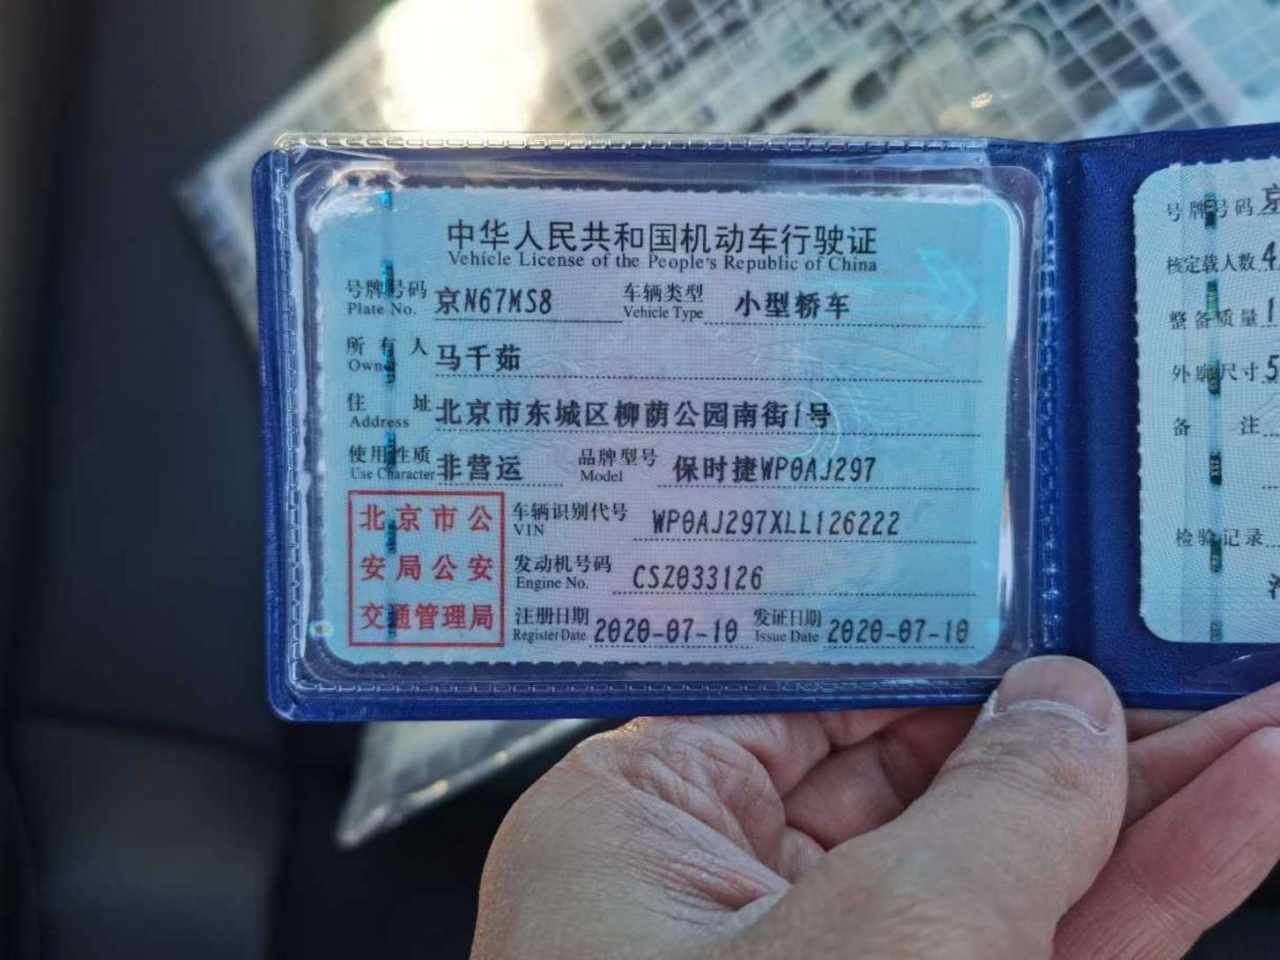 中华人民共和国机动车行驶证
Vehicle License of the People's Republic of China
号牌号码 京N67MS8 车辆类型 小型轿车
Plate No. Vehicle Type
所有人 马千茹
Owner
住址 北京市东城区柳荫公园南街1号
Address
使用性质 非营运 品牌型号 保时捷WP0AJ297
Use Character Model
北京市公
安局公安
交通管理局
车辆识别代号 WP0AJ297XLL126222
VIN
发动机号码 CSZ033126
Engine No.
注册日期 2020-07-10 发证日期 2020-07-10
Register Date Issue Date
号牌号码 京
核定载人数 4
整备质量 1
外廓尺寸 5
备注
检验记录